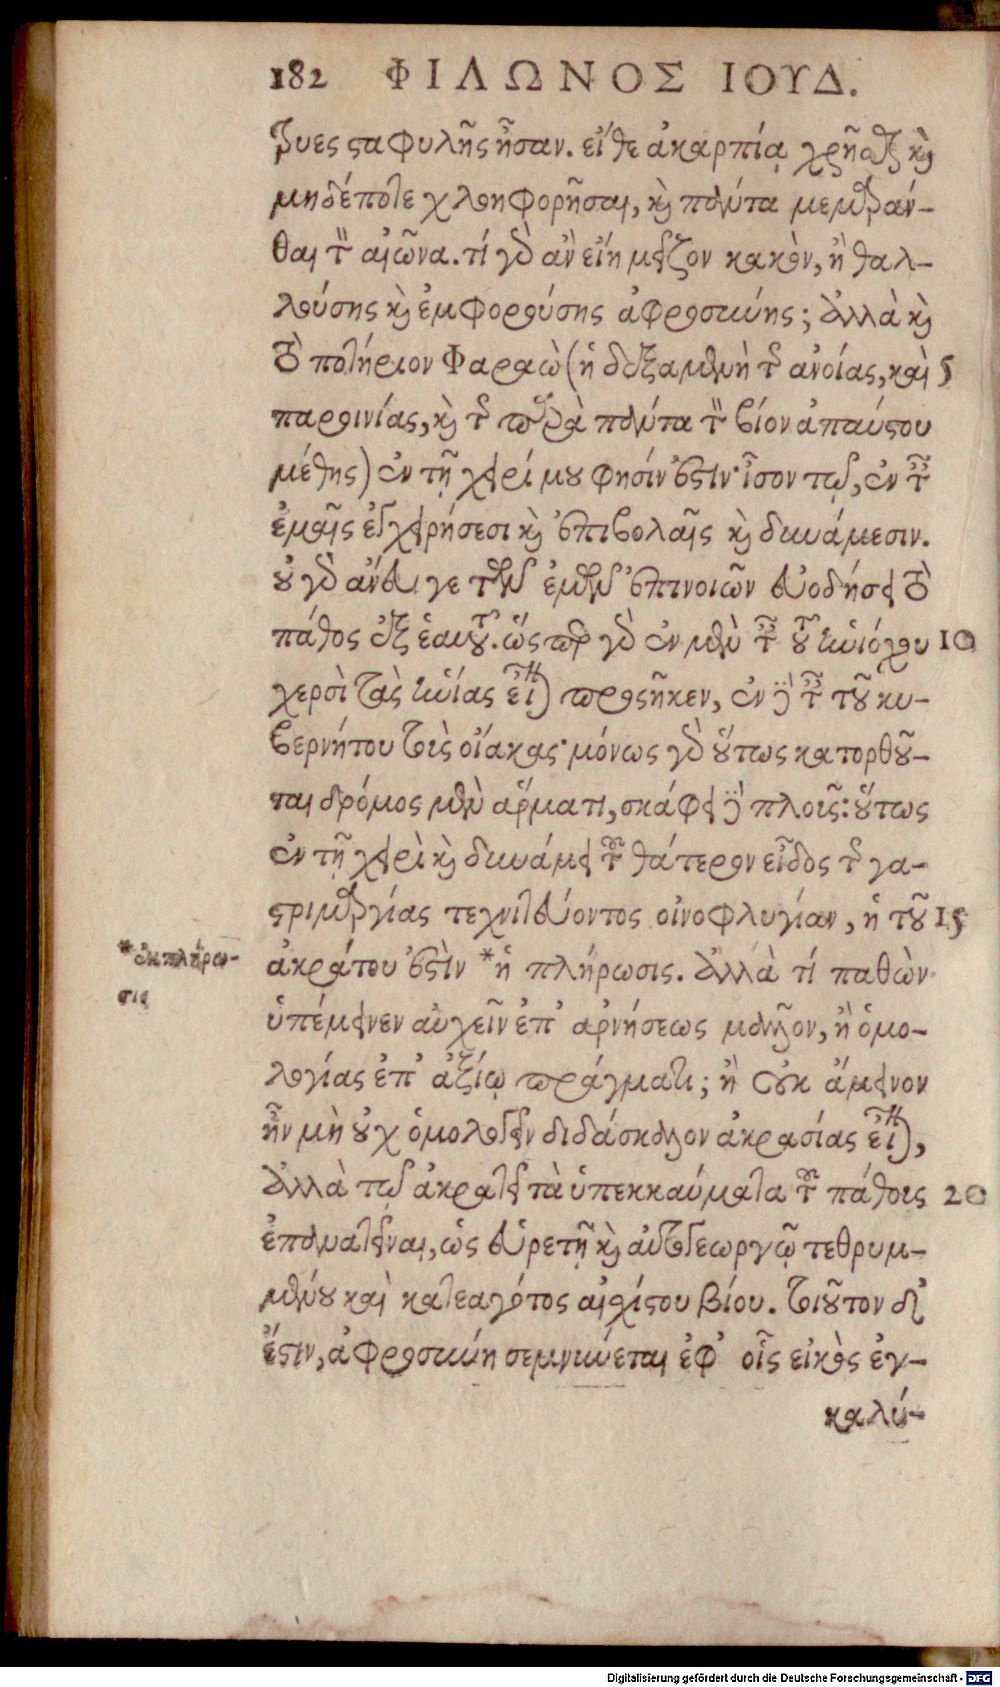 182 ΦΙΛΩΝΟΣ ΙΟΥΔ.
τρυες σαφυλῆς ἦσαν. εἴθε ἀκαρπίᾳ χρῆσθαι καὶ
μηδέποτε χλοηφορῆσαι, καὶ πάντα μεμαράν-
θαι τὸν αἰῶνα. τί γὰρ ἂν εἴη μεῖζον κακὸν, ἢ θαλ-
λούσης καὶ ἐμφορούσης ἀφροσύνης; ἀλλὰ καὶ
τὸ ποτήριον Φαραὼ (ἡ δεξαμενὴ τῆς ἀνοίας, καὶ 5
παροινίας, καὶ τῆς παρὰ πάντα τὸν βίον ἀπαύστου
μέθης) ἐν τῇ χειρί μου φησίν ἐστιν· ἴσον τῷ, ἐν ταῖς
ἐμαῖς ἐγχειρήσεσι καὶ ἐπιβολαῖς καὶ δυνάμεσιν.
οὐ γὰρ ἄνευ γε τῶν ἐμῶν ἐπινοιῶν εὐοδήσει τὸ
πάθος ἐξ ἑαυτοῦ. ὥσπερ γὰρ ἐν μὲν ταῖς τοῦ ἡνιόχου 10
χερσὶ τὰς ἡνίας εἶναι προσῆκεν, ἐν δὲ ταῖς τοῦ κυ-
βερνήτου τοὺς οἴακας· μόνως γὰρ οὕτως κατορθοῦ-
ται δρόμος μὲν ἅρματι, σκάφει δὲ πλοῦς: οὕτως
ἐν τῇ χειρὶ καὶ δυνάμει τοῦ θάτερον εἶδος τῆς γα-
στριμαργίας τεχνιτεύοντος οἰνοφλυγίαν, ἡ τοῦ 15
ἀκράτου ἐστὶν *ἡ πλήρωσις. ἀλλὰ τί παθὼν
*ἐκπλήρω-
σις
ὑπέμεινεν αὐχεῖν ἐπ' ἀρνήσεως μᾶλλον, ἢ ὁμο-
λογίας ἐπ' ἀξίῳ πράγματι; ἢ οὐκ ἄμεινον
ἦν μὴ οὐχ ὁμολογεῖν διδάσκαλον ἀκρασίας εἶναι,
ἀλλὰ τῷ ἀκρατεῖ τὰ ὑπεκκαύματα τοῦ πάθους 20
ἐπανατεῖναι, ὡς εὑρετῇ καὶ αὐτουργῷ τεθρυμ-
μένου καὶ κατεαγότος αἰσχίστου βίου. τοιοῦτον δέ
ἐστιν, ἀφροσύνη σεμνύνεται ἐφ' οἷς εἰκὸς ἐγ-
καλύ-
Digitalisierung gefördert durch die Deutsche Forschungsgemeinschaft - DFG